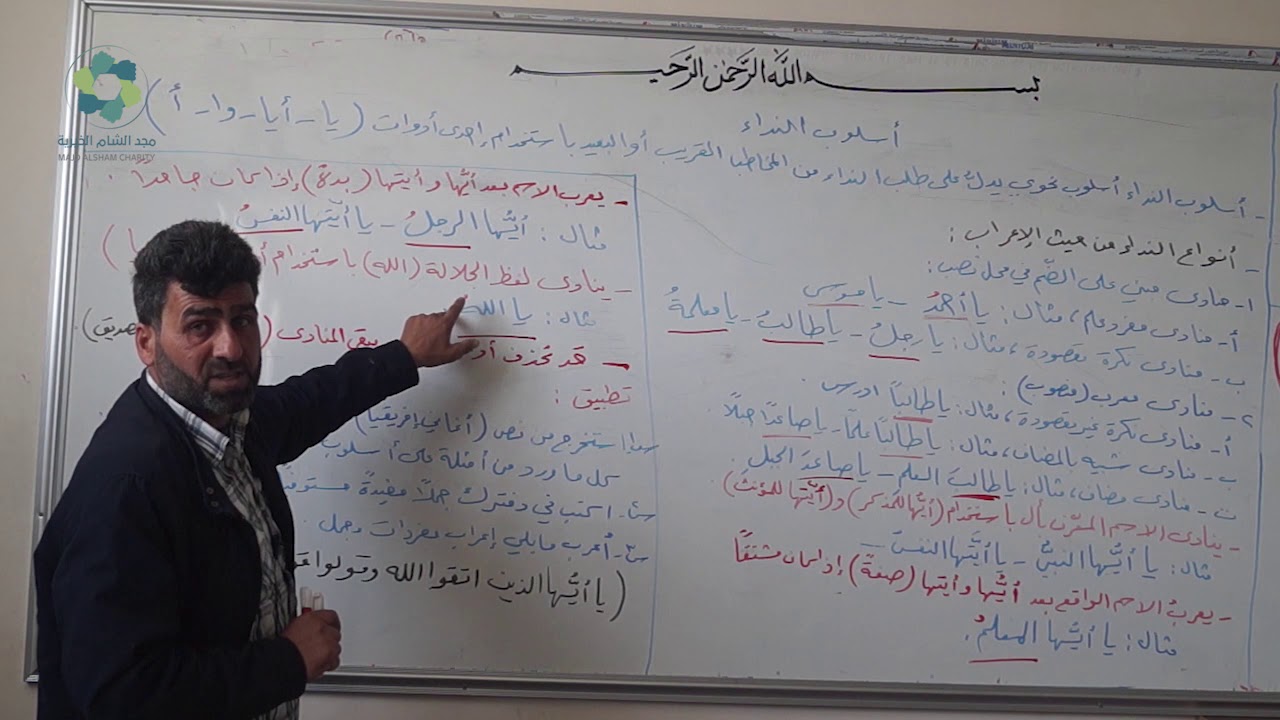 بسم الله الرحمن الرحيم
أسلوب النداء
- أسلوب النداء أسلوب نحوي يدل على طلب النداء من المخاطب القريب أو البعيد باستخدام إحدى أدوات (يا - أيا - وا - أ)
- أنواع النداء من حيث الإعراب :
١- منادى مبني على الضم في محل نصب :
أ- منادى مفرد علم ، مثال : يا أحمدُ - يا موسى
ب- منادى نكرة مقصودة ، مثال : يا رجلُ - يا طالبُ - يا معلمةُ
٢- منادى معرب (منصوب) :
أ- منادى نكرة غير مقصودة ، مثال : يا طالباً ادرس .
ب- منادى شبيه بالمضاف ، مثال : يا طالباً علماً - يا صاعداً جبلاً
ت- منادى مضاف ، مثال : يا طالبَ العلم - يا صاعدَ الجبل
- ينادى الاسم المقترن بأل باستخدام (أيّها للمذكر) و (أيّتها للمؤنث)
مثال : يا أيُّها النبيُّ - يا أيَّتها النفسُ
- يعربُ الاسم الواقع بعد أيُّها وأيتها (صفةً) إذا كان مشتقاً
مثال : يا أيُّها المعلمُ .
- يعرب الاسم بعد أيُّها وأيتها (بدلاً) إذا كان جامداً .
مثال : أيُّها الرجلُ - يا أيّتها النفسُ
- ينادى لفظ الجلالة (الله) باستخدام
مثال : يا الله
- قد تحذف يبقى المنادى
تطبيق :
س١- استخرج من نص (أغاني إفريقيا)
كل ما ورد من أمثلة على أسلوب
س٢- اكتب في دفترك جملاً مفيدةً
س٣- أعرب ما يلي إعراب مفردات وجمل .
(يا أيُّها الذين اتقوا الله وقولوا
مجد الشام الخيرية
MAJD ALSHAM CHARITY